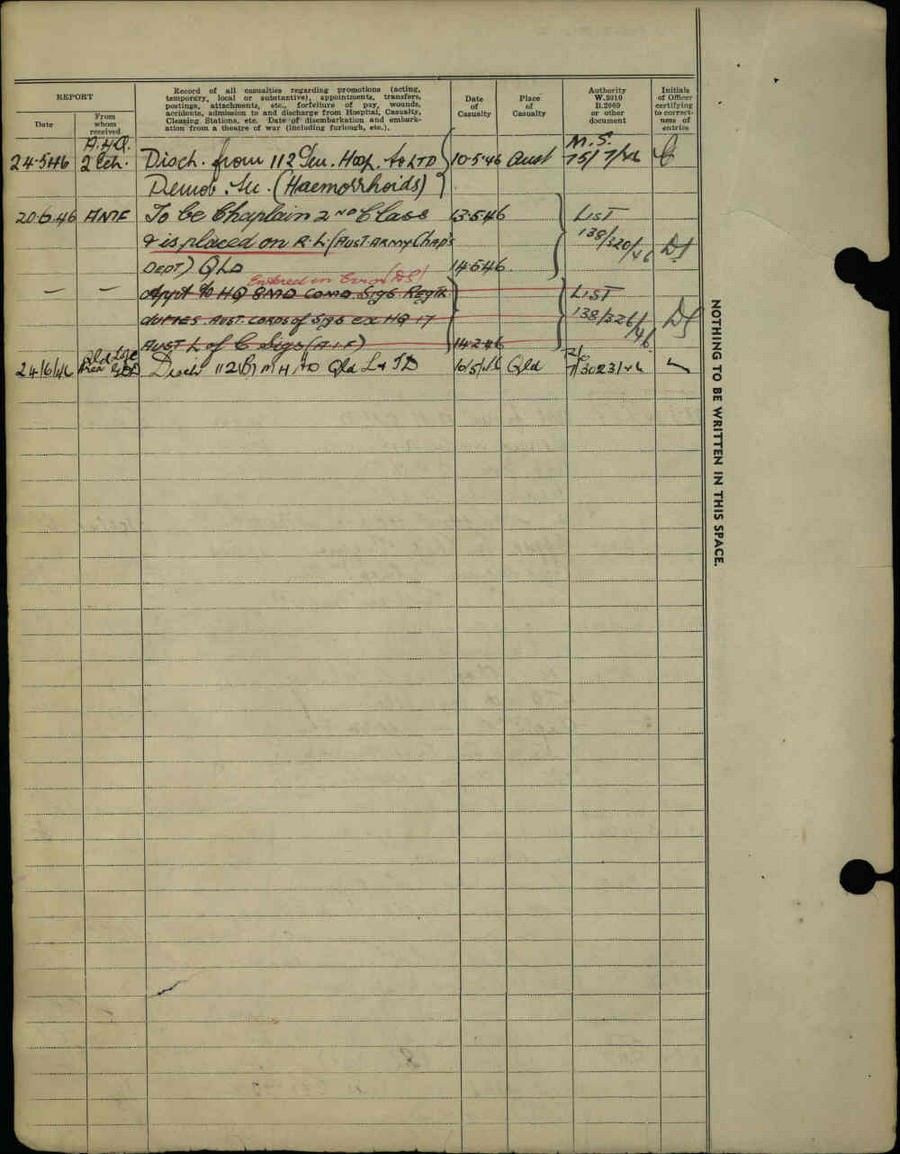 REPORT
Date
From whom received
Record of all casualties regarding promotions (acting,
temporary, local or substantive), appointments, transfers,
postings, attachments, etc., forfeiture of pay, wounds,
accidents, admission to and discharge from Hospital, Casualty,
Clearing Stations, etc. Date of disembarkation and embark-
ation from a theatre of war (including furlough, etc.).
Date
of
Casualty
Place
of
Casualty
Authority
W.3010
B.2069
or other
document
Initials
of Officer
certifying
to correct-
ness of
entries
A.H.Q. M.S.
24·5·46 2 Ech. Disch. from 112 Gen. Hosp. to LTD 10·5·46 Aust 75/7/46
Demob. (Haemorrhoids)
20·6·46 To be Chaplain 2ND Class 13·5·46 LIST
& is placed on R.L (AUST ARMY Chap's 138/320/46
DEPT) QLD 14·5·46
Entered in Error
— — Appt to HQ COMD Sigs Regtl LIST
duties Aust. Corps of Sigs ex HQ 17 138/326/46
AUST L of C Sigs (A.I.F) 14·2·46
24/6/46 Disch 112 MH to Qld L & TD 10/5/46 Qld
NOTHING TO BE WRITTEN IN THIS SPACE.